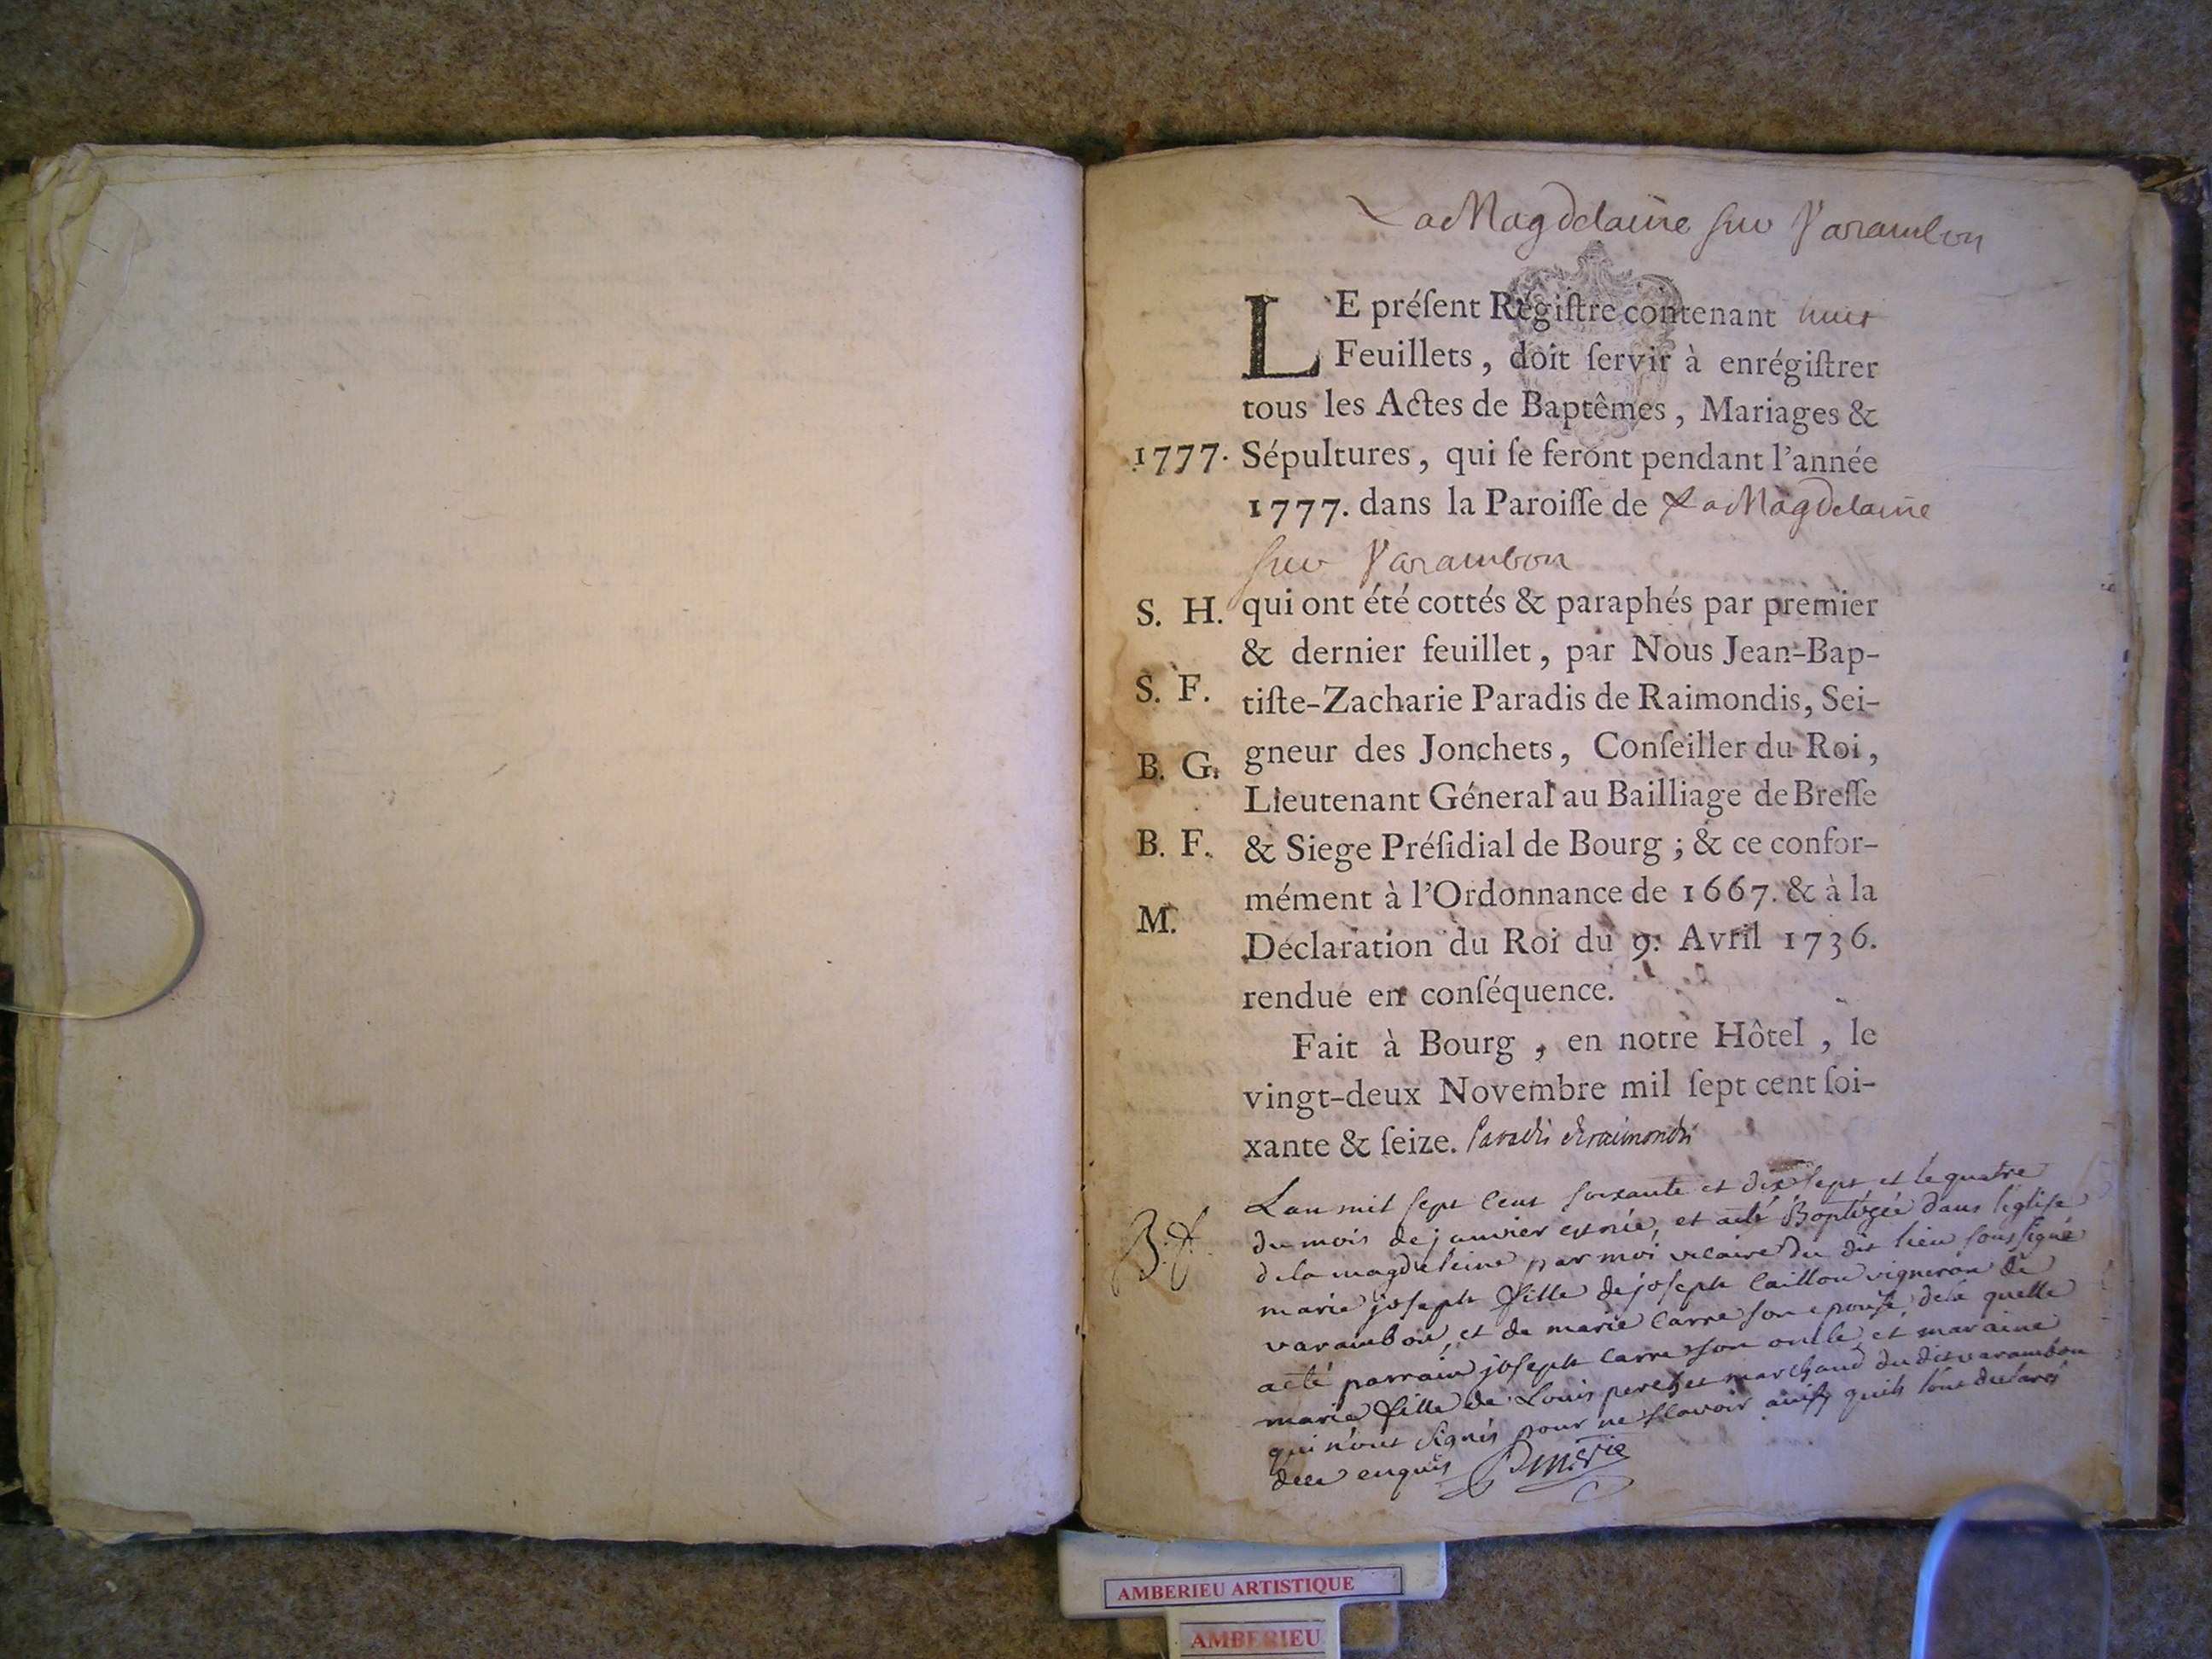 La Magdelaine sur Varambon
LE préſent Régiſtre contenant huit
Feuillets, doit ſervir à enrégiſtrer
tous les Actes de Baptêmes, Mariages &
1777. Sépultures, qui ſe feront pendant l'année
1777. dans la Paroiſſe de La Magdelaine
sur Varambon
S. H. qui ont été cottés & paraphés par premier
& dernier feuillet, par Nous Jean-Bap-
S. F. tiſte-Zacharie Paradis de Raimondis, Sei-
B. G. gneur des Jonchets, Conſeiller du Roi,
Lieutenant Géneral au Bailliage de Breſſe
B. F. & Siege Préſidial de Bourg ; & ce confor-
mément à l'Ordonnance de 1667. & à la
M. Déclaration du Roi du 9. Avril 1736.
rendue en conſéquence.
Fait à Bourg, en notre Hôtel, le
vingt-deux Novembre mil ſept cent ſoi-
xante & ſeize. Paradis deraimondis
Lan mil sept cent soixante et dix sept et le quatre
B. f. du mois de janvier est née, et a eté Baptizée dans leglise
dela magdeleine par moi vicaire du dit lieu soussigné
marie joseph fille de joseph Caillou vigneron de
varambon, et de marie Carre son epouse, dela quelle
a eté parrain joseph Carre son oncle et maraine
marie fille de Louis perchet marchand du dit varambon
qui n'ont signés pour ne sçavoir ainsy quils l'ont declarés
dece enquis
AMBERIEU ARTISTIQUE
AMBERIEU